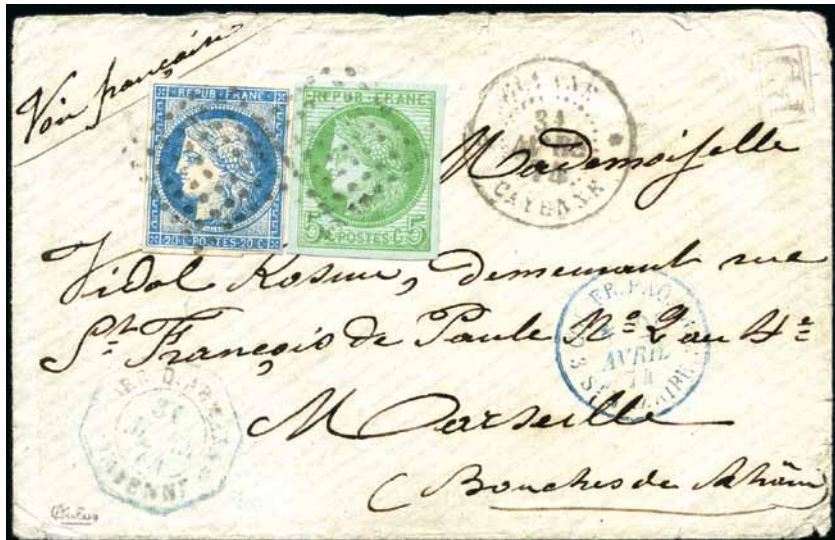 Voie française
REPUB·FRANC
20C·POSTES·20C
REPUB·FRANC
5 POSTES 5
GUYANE
31
CAYENNE
PD
Mademoiselle
Vidal Kosma, demeurant rue
St François de Paule No 2 au 4e
FR. PAQ.
AVRIL
74
CORR. D. ARMÉES
31
CAYENNE
Marseille
(Bouches du Rhône)